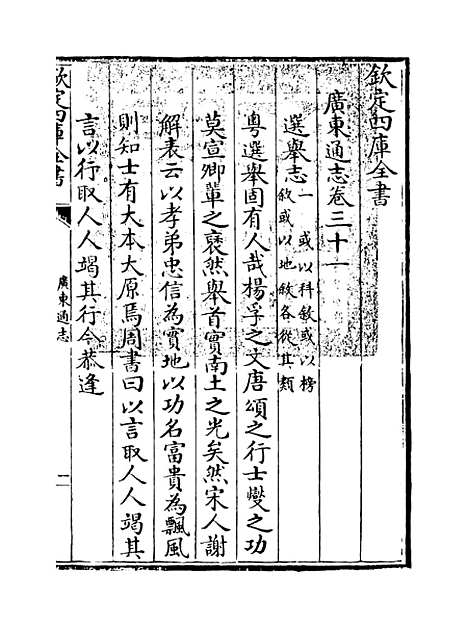 欽定四庫全書
廣東通志卷三十一
選舉志一 或以科敘或以榜敘或以地敘各從其類
粵選舉固有人哉楊孚之文唐頌之行士燮之功
莫宣卿輩之褒然舉首實南土之光矣然宋人謝
解表云以孝弟忠信為實地以功名富貴為飄風
則知士有大本大原焉周書曰以言取人人竭其
言以行取人人竭其行今恭逢
欽定四庫全書
廣東通志